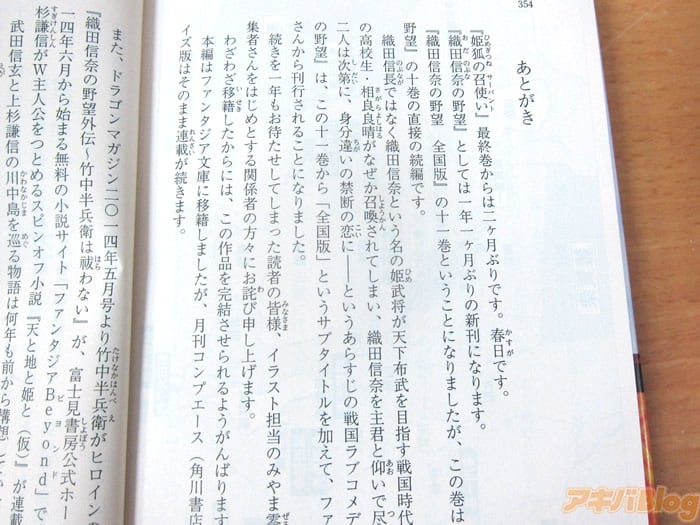 354
あとがき
『姫狐の召使い』最終巻からは二ヶ月ぶりです。春日です。
『織田信奈の野望』としては一年一ヶ月ぶりの新刊になります。
『織田信奈の野望　全国版』の十一巻ということになりましたが、この巻は
野望』の十巻の直接の続編です。
織田信長ではなく織田信奈という名の姫武将が天下布武を目指す戦国時代
の高校生・相良良晴がなぜか召喚されてしまい、織田信奈を主君と仰いで尽
二人は次第に、身分違いの禁断の恋に――というあらすじの戦国ラブコメデ
の野望』は、この十一巻から「全国版」というサブタイトルを加えて、ファ
さんから刊行されることになりました。
続きを一年もお待たせしてしまった読者の皆様、イラスト担当のみやま零
集者さんをはじめとする関係者の方々にお詫び申し上げます。
わざわざ移籍したからには、この作品を完結させられるようがんばります
本編はファンタジア文庫に移籍しましたが、月刊コンプエース（角川書店
イズ版はそのまま連載が続きます。
また、ドラゴンマガジン二〇一四年五月号より竹中半兵衛がヒロインの
『織田信奈の野望外伝～竹中半兵衛は祓わない』が、富士見書房公式ホー
一四年六月から始まる無料の小説サイト「ファンタジアBeyond」で
杉謙信がW主人公をつとめるスピンオフ小説『天と地と姫と（仮）』が連載
武田信玄と上杉謙信の川中島を巡る物語は何年も前から構想
アキバBlog